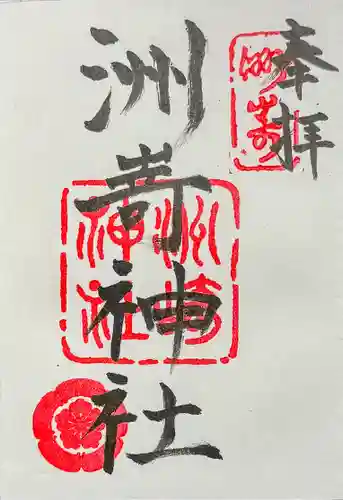 奉拝
洲嵜
洲嵜神社
洲崎
神社